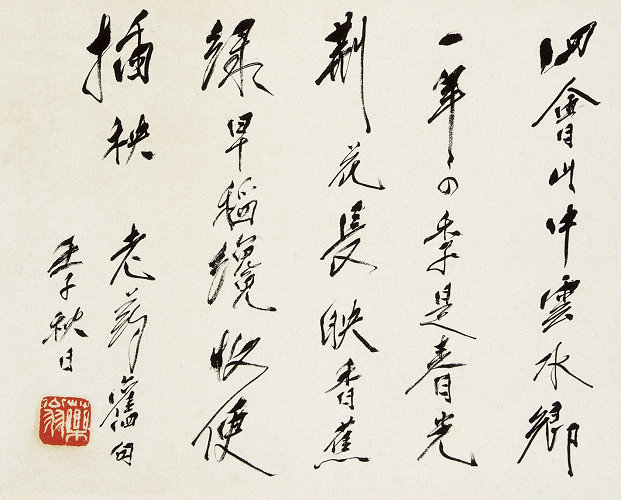 四會山中雲水鄉
一年四季是春光
荆花長映香蕉
綠早稻纔收便
插秧 老药舊句
壬子秋日
藥翁